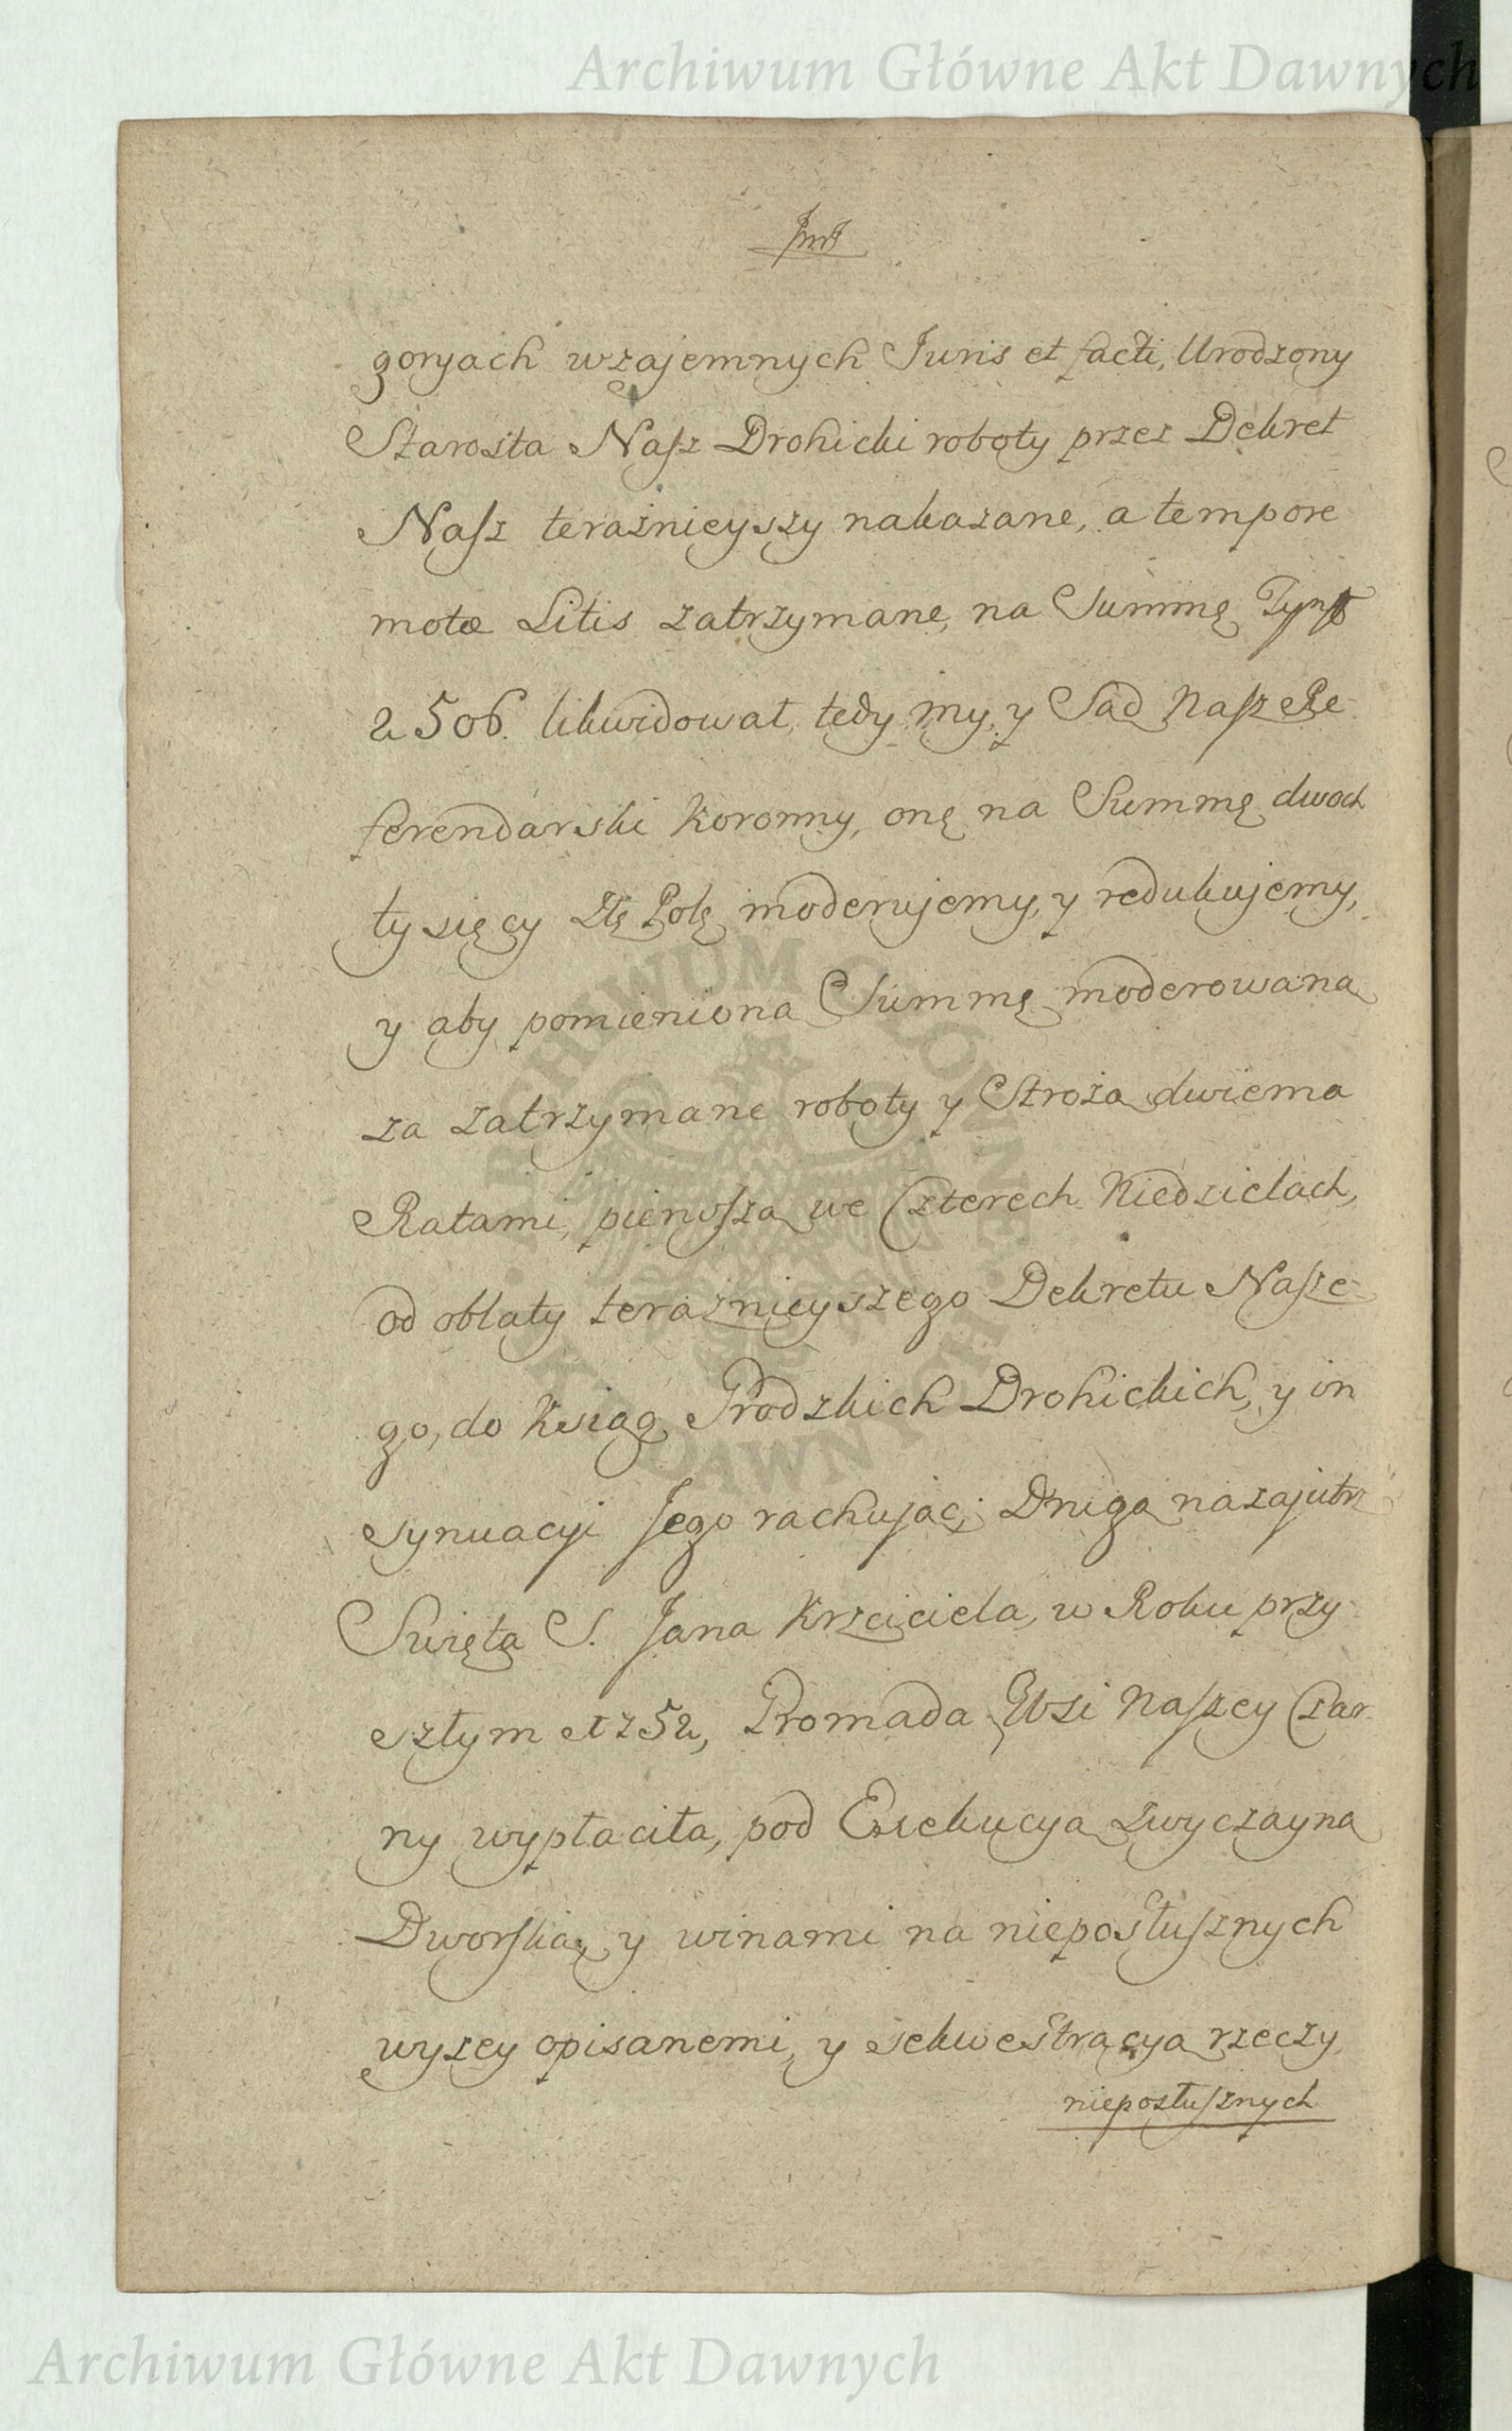 Archiwum Główne Akt Dawnych
JmJ
goryach wzajemnych Juris et facti, Urodzony
Starosta Nasz Drohicki roboty przez Dekret
Nasz teraznieyszy nakazane, a tempore
motæ Litis zatrzymane, na Summę Tynf
2506. likwidował, tedy my, y Sąd Nasz Re-
ferendarski Koronny, onę na Summę dwoch
tysięcy Złł Poll moderujemy, y redukujemy,
y aby pomienioną Summę moderowaną
za zatrzymane roboty y Strożą dwiema
Ratami, pierwszą we Czterech Niedzielach,
od oblaty teraznieyszego Dekretu Nasze-
go, do Ksiąg Grodzkich Drohickich, y in
synuacyi Jego rachując; Drugą nazajutrz
Swięta S. Jana Krzciciela, w Roku przy-
szłym 1752, Gromada Wsi Naszey Czar-
ny wypłaciła, pod Exekucyą zwyczayną
Dworską, y winami na nieposłusznych
wyzey opisanemi, y sekwestracyą rzeczy
nieposłusznych
ARCHIWUM GŁÓWNE AKT DAWNYCH
Archiwum Główne Akt Dawnych